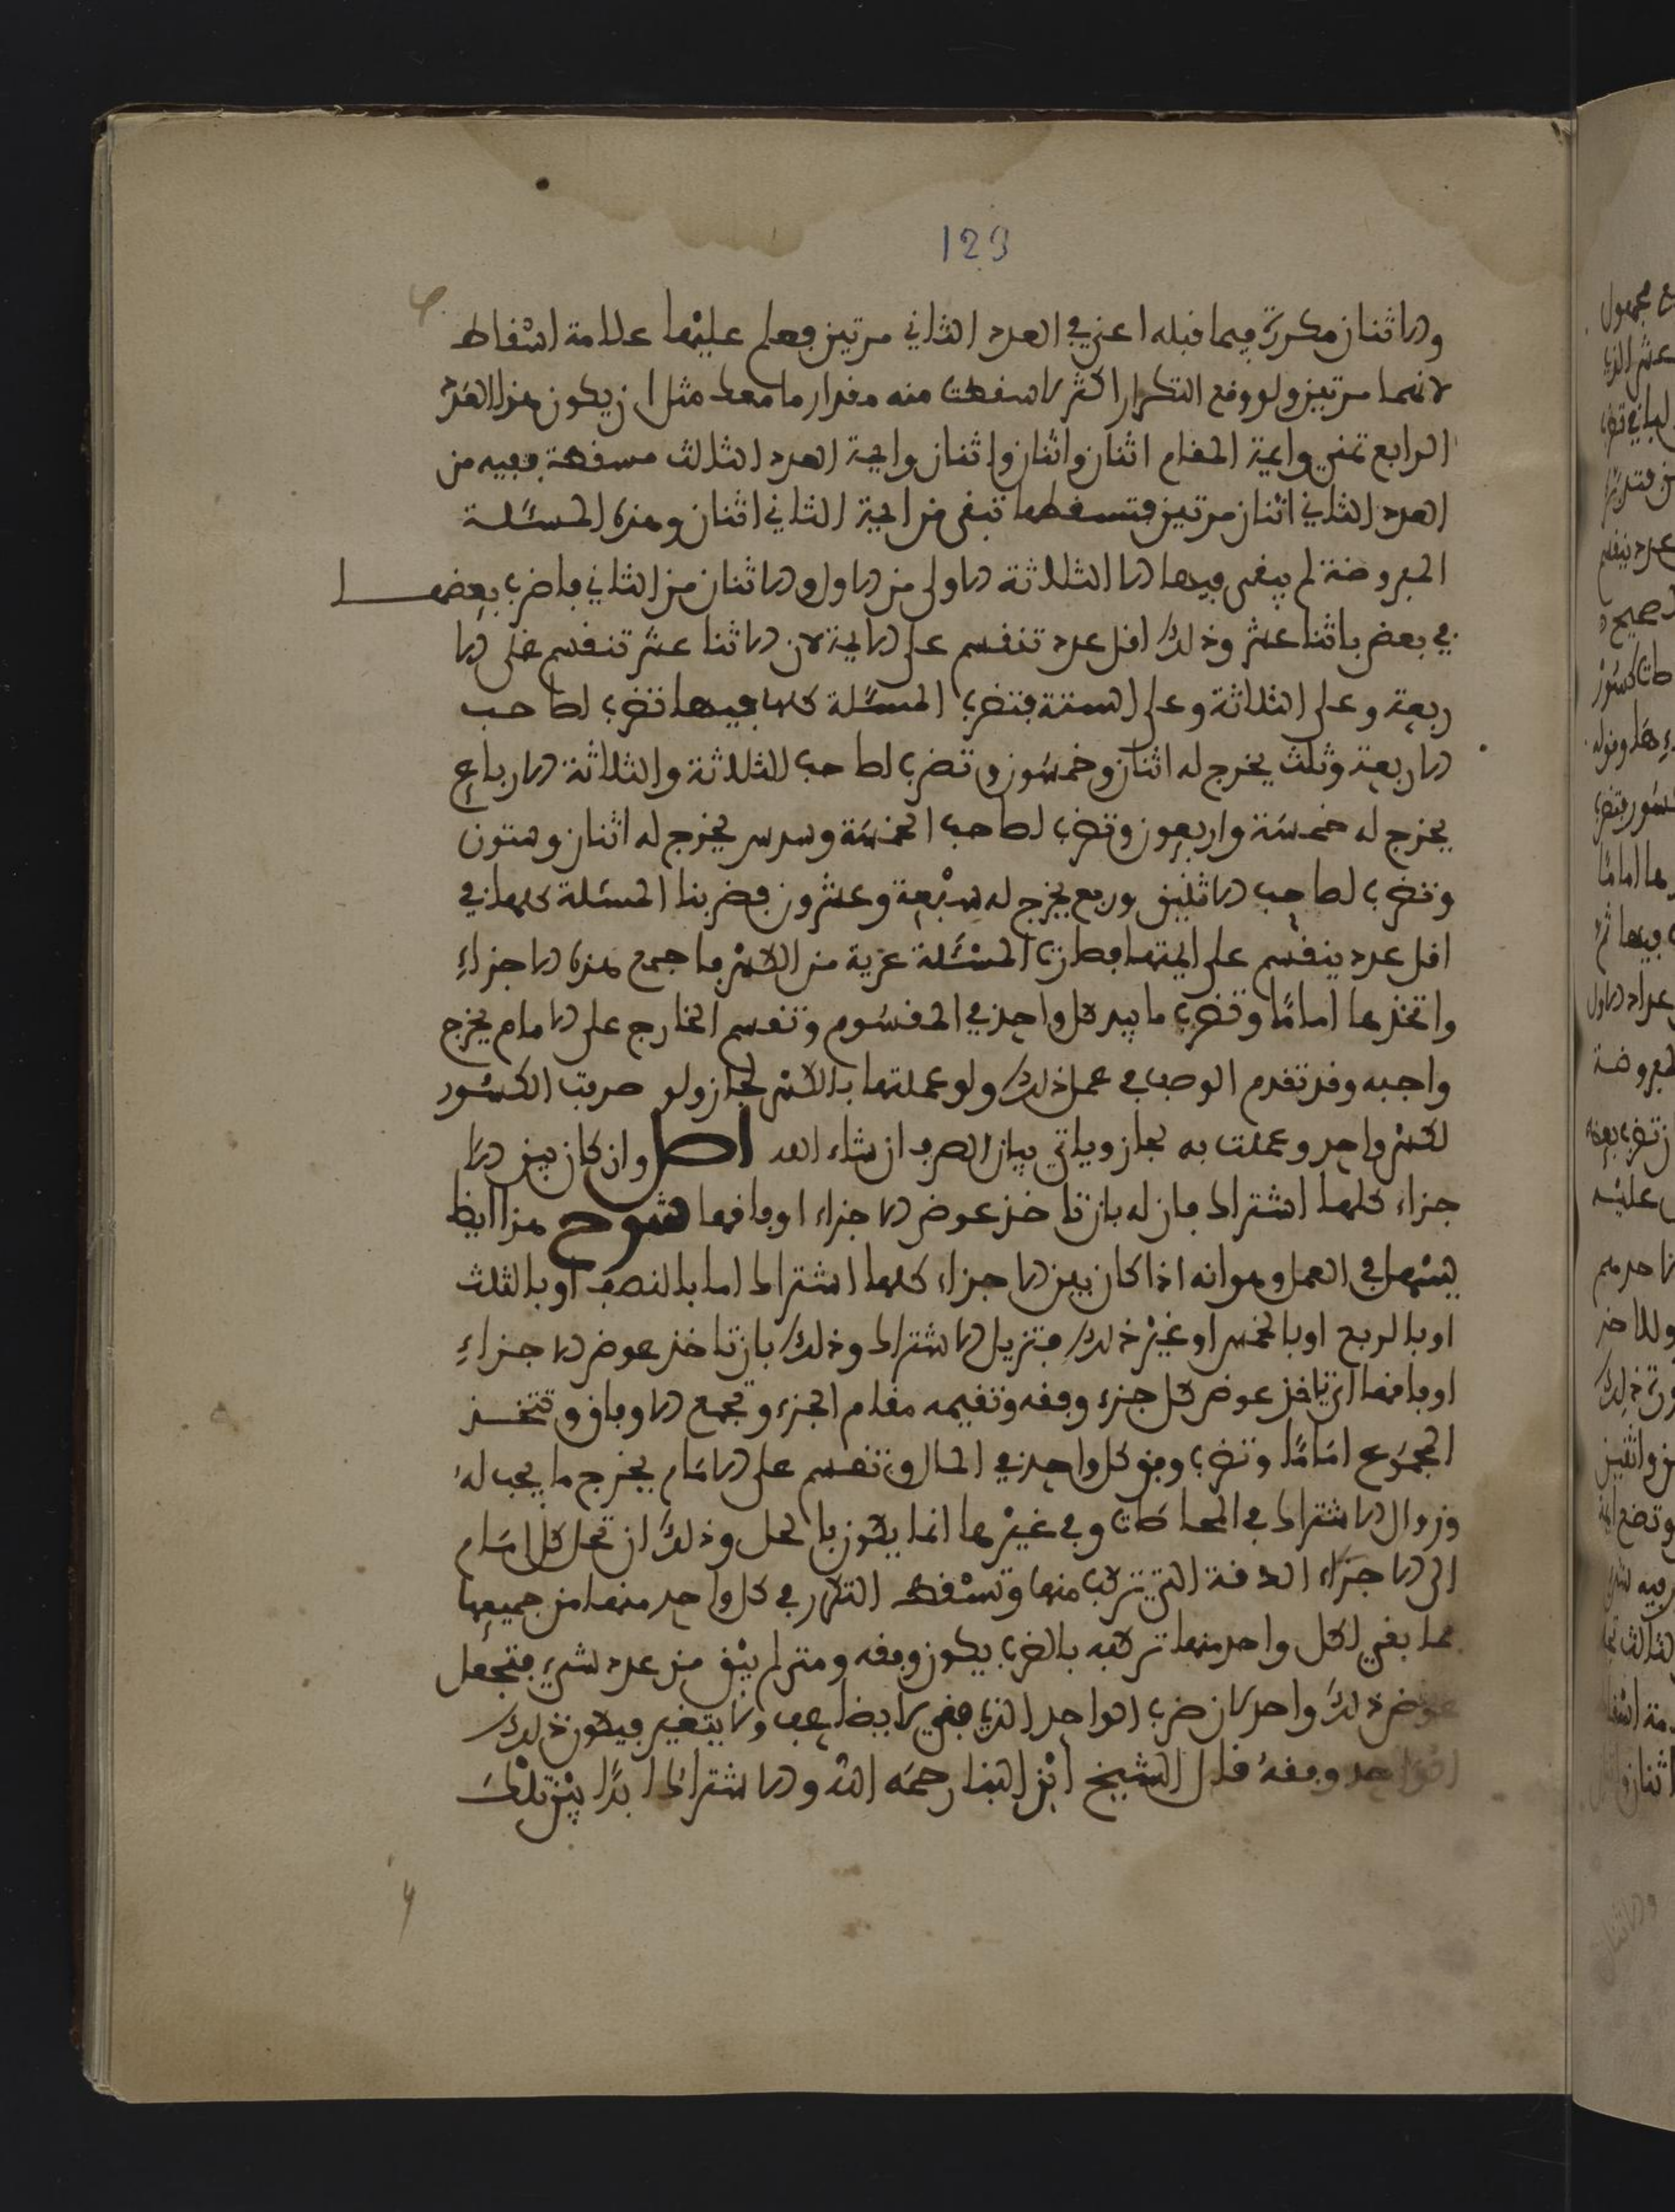 129
والاثنان مكررة فيما قبله اعني في العدد الثاني مرتين فعلم عليها علامة اسقاط
لانهما مرتين ولو وقع التكرار اكثر لاسقطت منه مقدار ما معك مثل ان يكون هذا العدد
الرابع ثمني وايمة المقام اثنان واثنان واثنان وايمة العدد الثالث مسقطة ففيه من
العدد الثاني اثنان مرتين فتسقطها تبقى من ايمة الثاني اثنان وهذه المسئلة
المفروضة لم يبقى فيها الا الثلاثة الاولى من الاول والاثنان من الثاني فاضرب بعضها
في بعض باثنا عشر وذلك اقل عدد تنقسم على الايمة لان الاثنا عشر تنقسم على الا
ربعة وعلى الثلاثة وعلى الستة فتضرب المسئلة كلها فيها تضرب لصاحب
الاربعة وثلث يخرج له اثنان وخمسون وتضرب لصاحب الثلاثة والثلاثة الارباع
يخرج له خمسة واربعون وتضرب لصاحب الخمسة وسدس يخرج له اثنان وستون
وتضرب لصاحب الاثنين وربع يخرج له سبعة وعشرون فضربنا المسئلة كلها في
اقل عدد ينقسم على ايمتها فصارت المسئلة عرية من الكسر فاجمع هذه الاجزاء
واتخذها اماما وتضرب ما بيد كل واحد في المقسوم وتقسم الخارج على الامام يخرج
واجبه وقد تقدم الوصف في عمل ذلك ولو عملتها بالكسر لجاز ولو صرفت الكسور
لكسر واحد وعملت به لجاز وياتي بيان الصرف ان شاء الله اصل وان كان بين الا
جزاء كلها اشتراك فازله بان تاخذ عوض الاجزاء اوفاقها شرح هذا ايظا
يسهل في العمل وهو انه اذا كان بين الاجزاء كلها اشتراك اما بالنصف او بالثلث
او بالربع او بالخمس او غير ذلك فتزيل الاشتراك وذلك بان تاخذ عوض الاجزاء
اوفاقها اي تاخذ عوض كل جزء وفقه وتقيمه مقام الجزء وتجمع الاوفاق وتتخذ
المجموع اماما وتضرب وفق كل واحد في المال وتقسم على الامام يخرج ما يجب له
وزوال الاشتراك في المحاصات وفي غيرها انما يكون بالحل وذلك ان تحل كل امام
الى الاجزاء التي تركب منها وتسقط التكرر في كل واحد منها من جميعها
فما بقي لكل واحد منها تركبه بالضرب يكون وفقه ومتى لم يبق من عدد شيء فتجعل
عوض ذلك واحد لان ضرب الواحد الذي بقي لا يضاعف ولا يتغير فيكون ذلك
الواحد وفقه قال الشيخ ابن البنا رحمه الله والاشتراك ابدا بين تلك